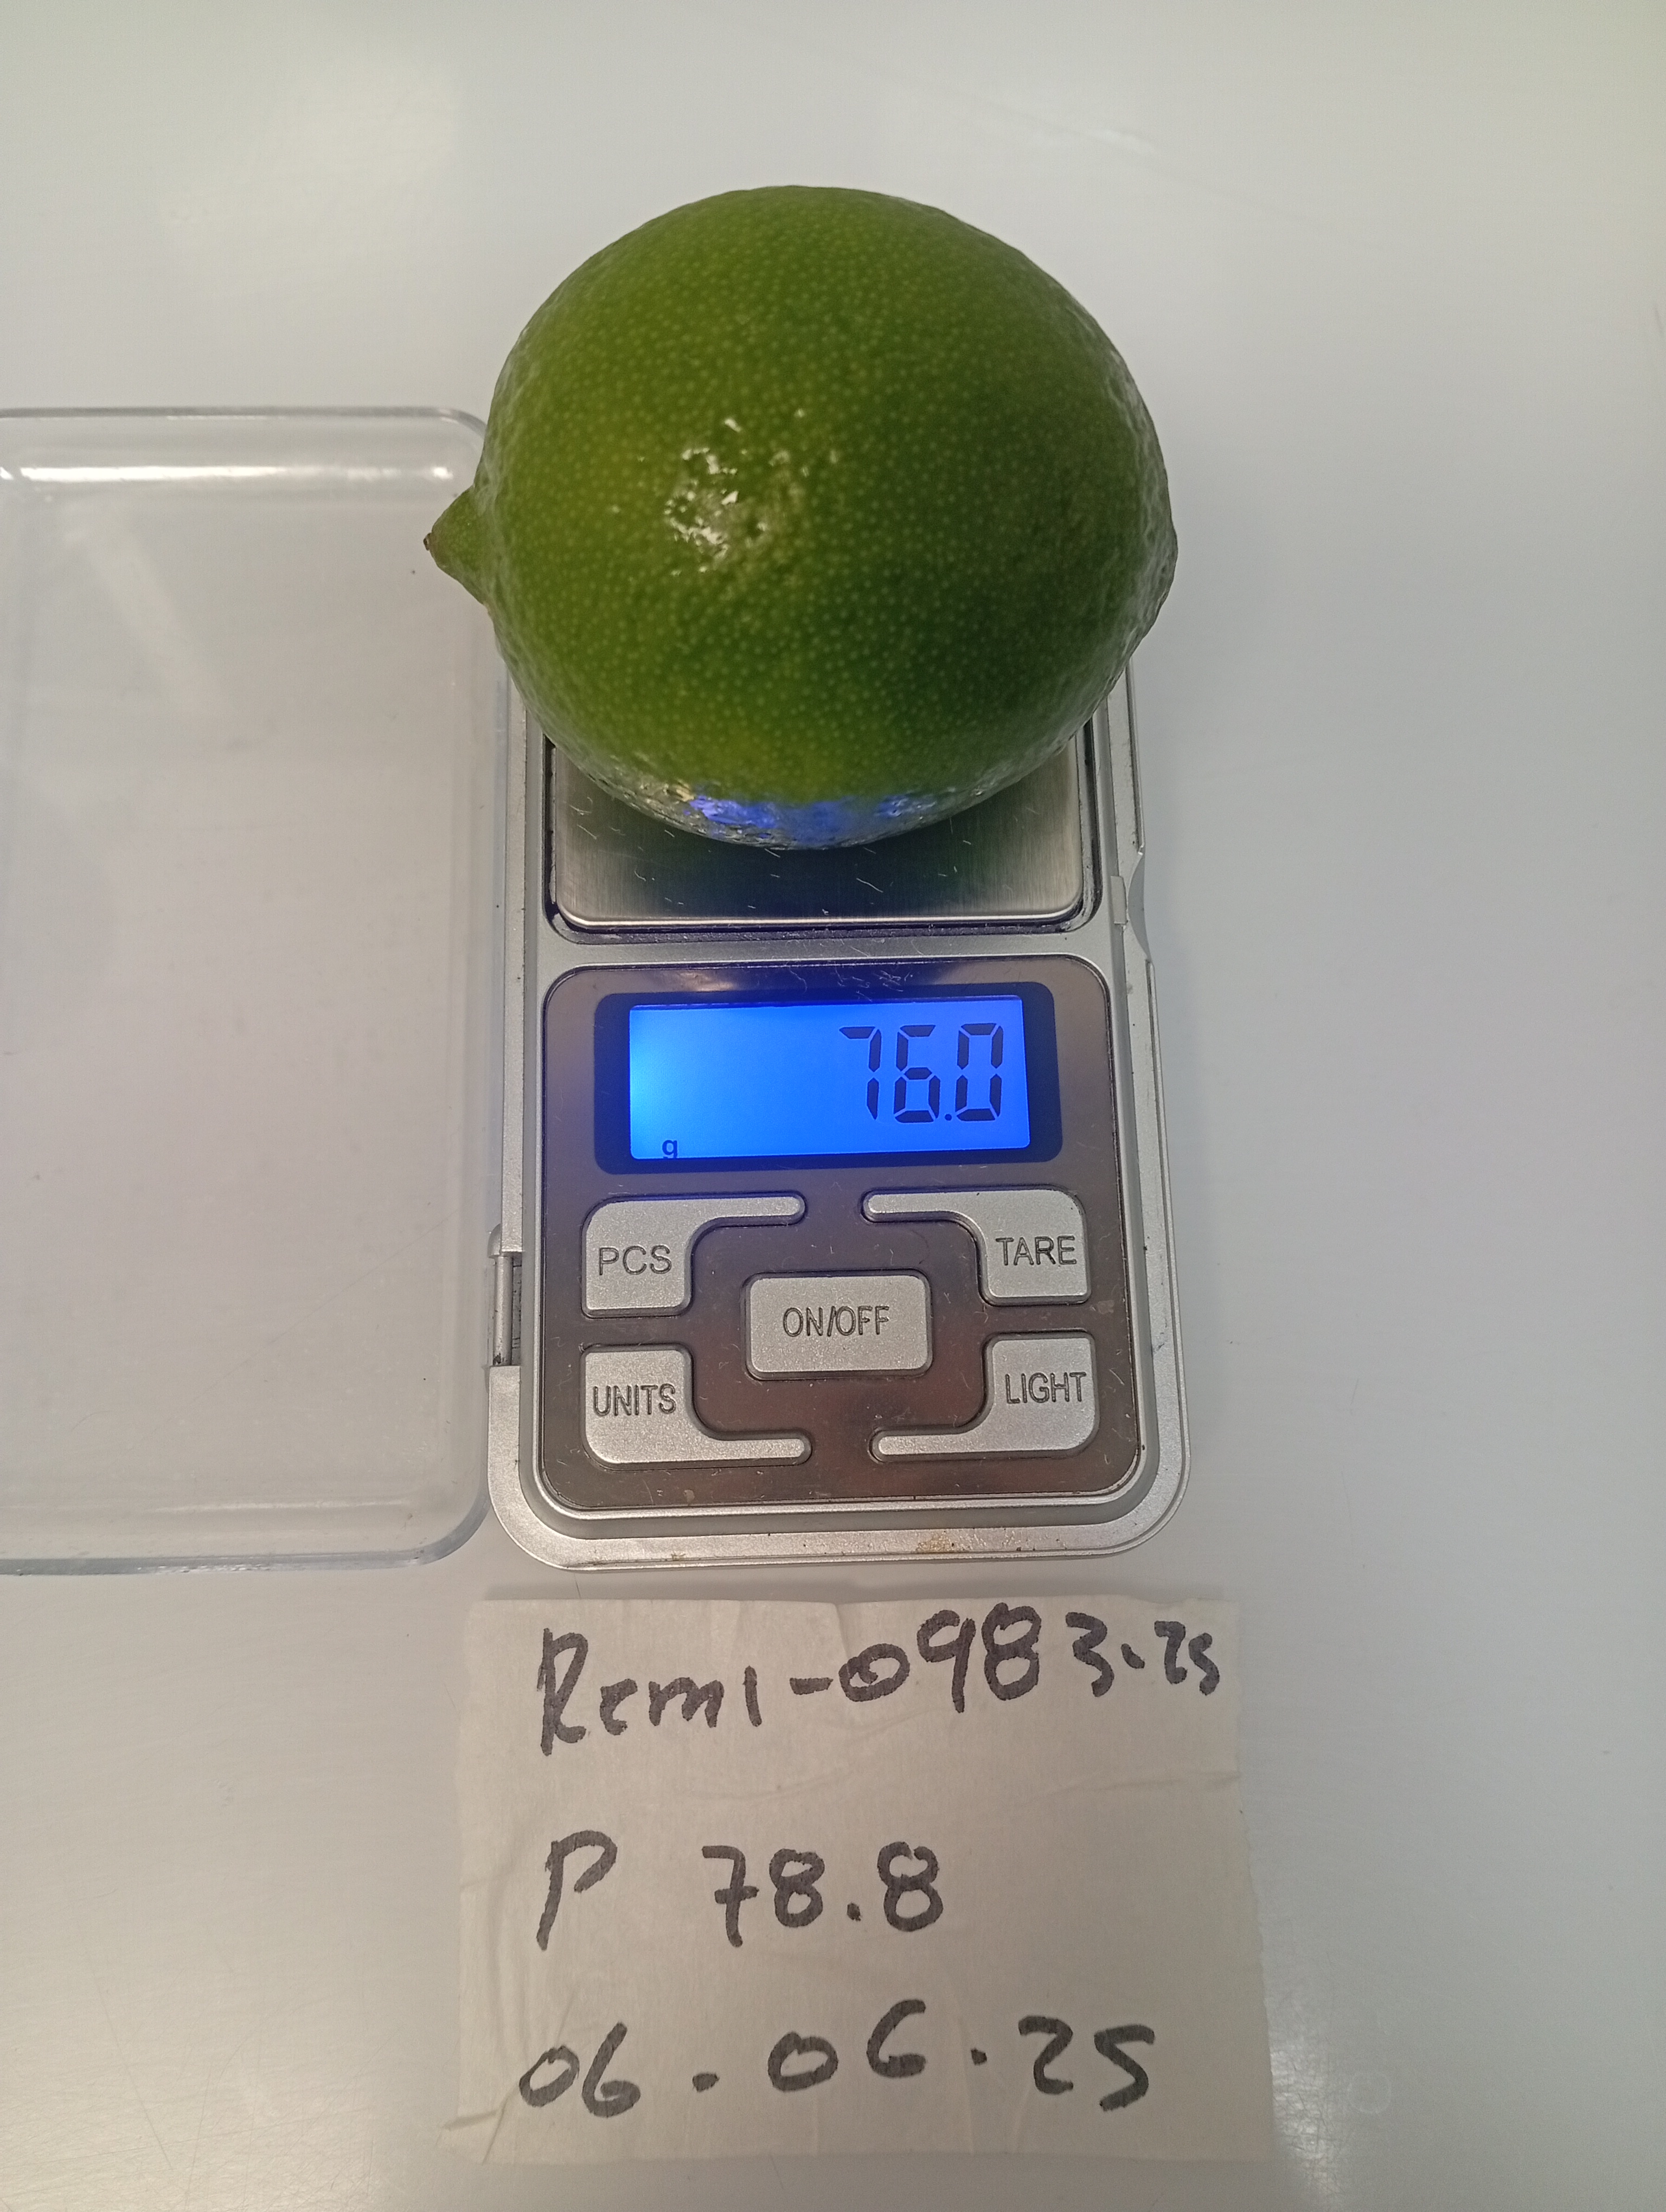 76.0
g
PCS
TARE
ON/OFF
UNITS
LIGHT
Remi-0983.25
P 78.8
06.06.25